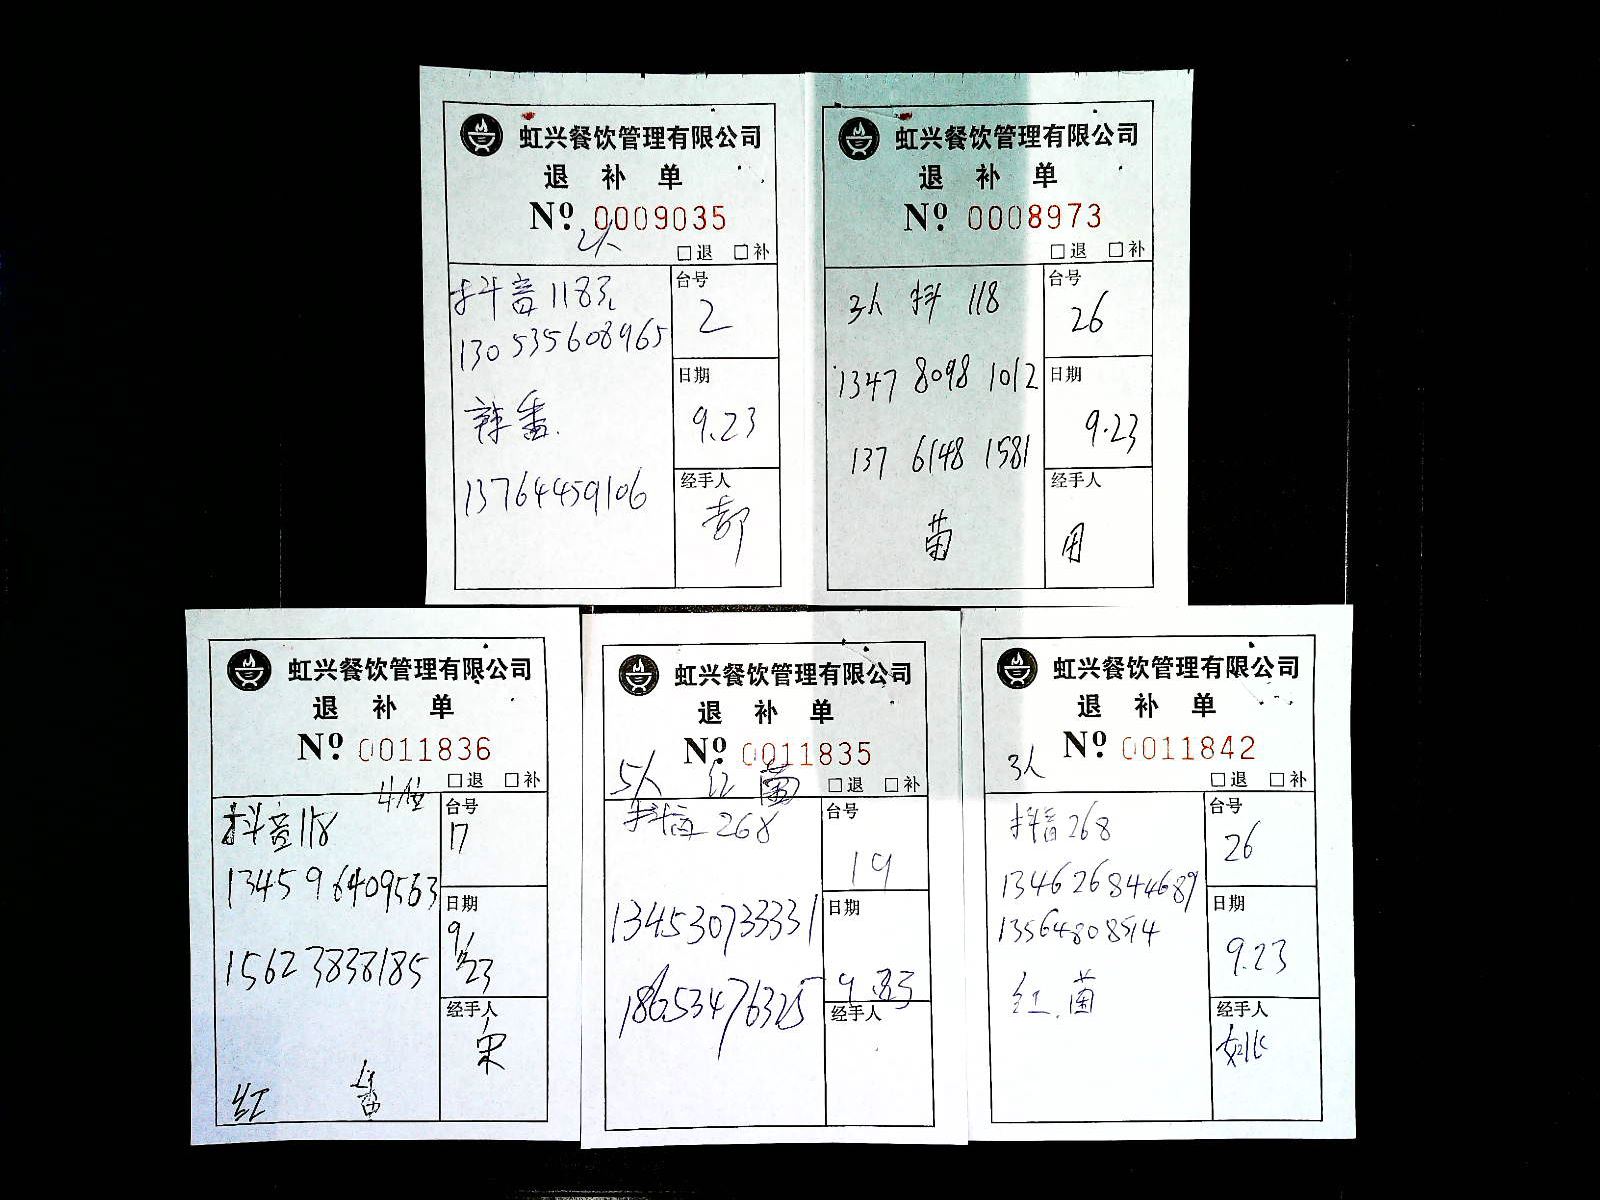 虹兴餐饮管理有限公司
退 补 单
Nº 0009035
2人
□退 □补
抖音118元
130535608965
辣番.
13764459106
台号
2
日期
9.23
经手人
郝
虹兴餐饮管理有限公司
退 补 单
Nº 0008973
□退 □补
3人 抖 118
1347 8098 1012
137 6148 1581
菌
台号
26
日期
9.23
经手人
用
虹兴餐饮管理有限公司
退 补 单
Nº 0011836
4位
□退 □补
抖音118
134596409563
15623838185
红 番
台号
17
日期
9/23
经手人
宋
虹兴餐饮管理有限公司
退 补 单
Nº 0011835
5人 红 菌
□退 □补
抖音268
134530733331
18653476325
台号
19
日期
9.23
经手人
虹兴餐饮管理有限公司
退 补 单
Nº 0011842
3人
□退 □补
抖音268
134626844689
13564808514
红.菌
台号
26
日期
9.23
经手人
姚